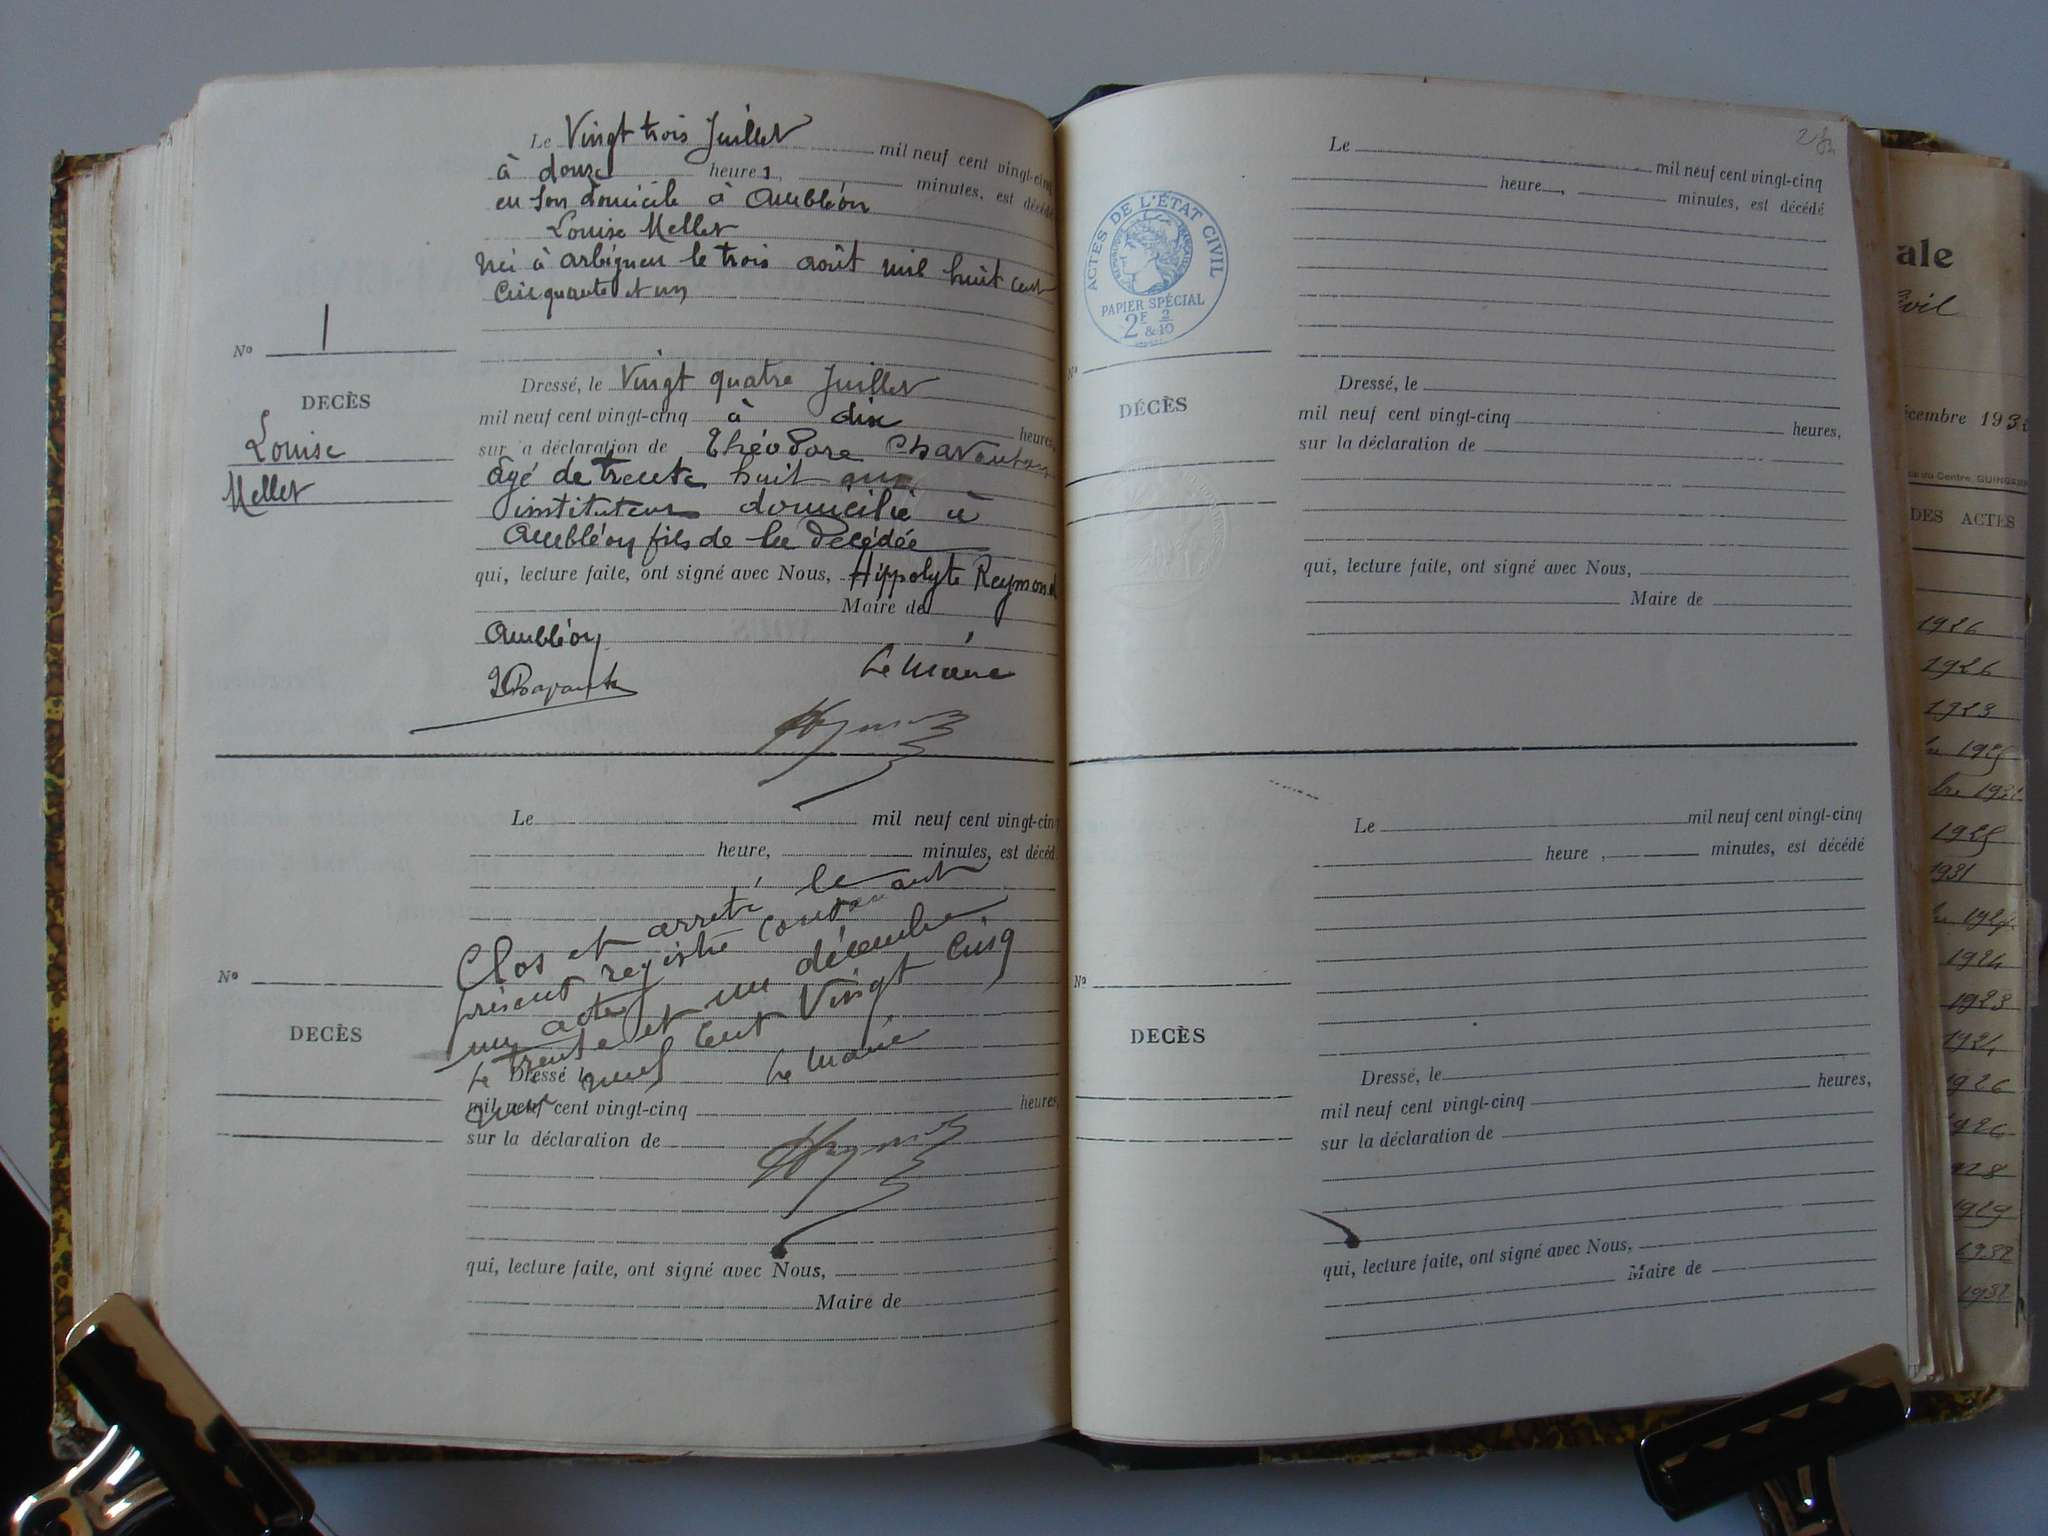 Le Vingt trois Juillet mil neuf cent vingt-cinq
à douze heures, minutes, est décédé
en son domicile à Ambléon
Louise Mellet
née à arbignieu le trois août mil huit cent
cinquante et un
No 1
DECÈS
Louise
Mellet
Dressé, le Vingt quatre Juillet
mil neuf cent vingt-cinq à dix heures,
sur a déclaration de Théodore
âgé de trente huit ans
instituteur domicilié à
Ambléon fils de la décédée
qui, lecture faite, ont signé avec Nous, Hippolyte Reymond
Maire de
Ambléon
Le Maire
Le mil neuf cent vingt-cinq
heure, minutes, est décéd
Clos et arreté le
présent registre contenant
un acte
Le trente et un décembre
mil neuf cent Vingt cinq
Le Maire
No
DECÈS
Dressé l
mil neuf cent vingt-cinq heures,
sur la déclaration de
qui, lecture faite, ont signé avec Nous,
Maire de
Le mil neuf cent vingt-cinq
heure, minutes, est décédé
ACTES DE L'ÉTAT CIVIL
RÉPUBLIQUE FRANÇAISE
PAPIER SPÉCIAL
2F & 2/10
No
DÉCÈS
Dressé, le
mil neuf cent vingt-cinq heures,
sur la déclaration de
qui, lecture faite, ont signé avec Nous,
Maire de
Le mil neuf cent vingt-cinq
heure, minutes, est décédé
No
DECÈS
Dressé, le
mil neuf cent vingt-cinq heures,
sur la déclaration de
qui, lecture faite, ont signé avec Nous,
Maire de
ale
ivil
écembre 193
du Centre, GUINGAMP
DES ACTES
1926
1926
1923
1925
1925
1931
1924
1923
1924
1926
1926
1928
1929
1932
1932